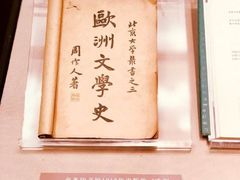 北京大學叢書之三
歐洲文學史
周作人著